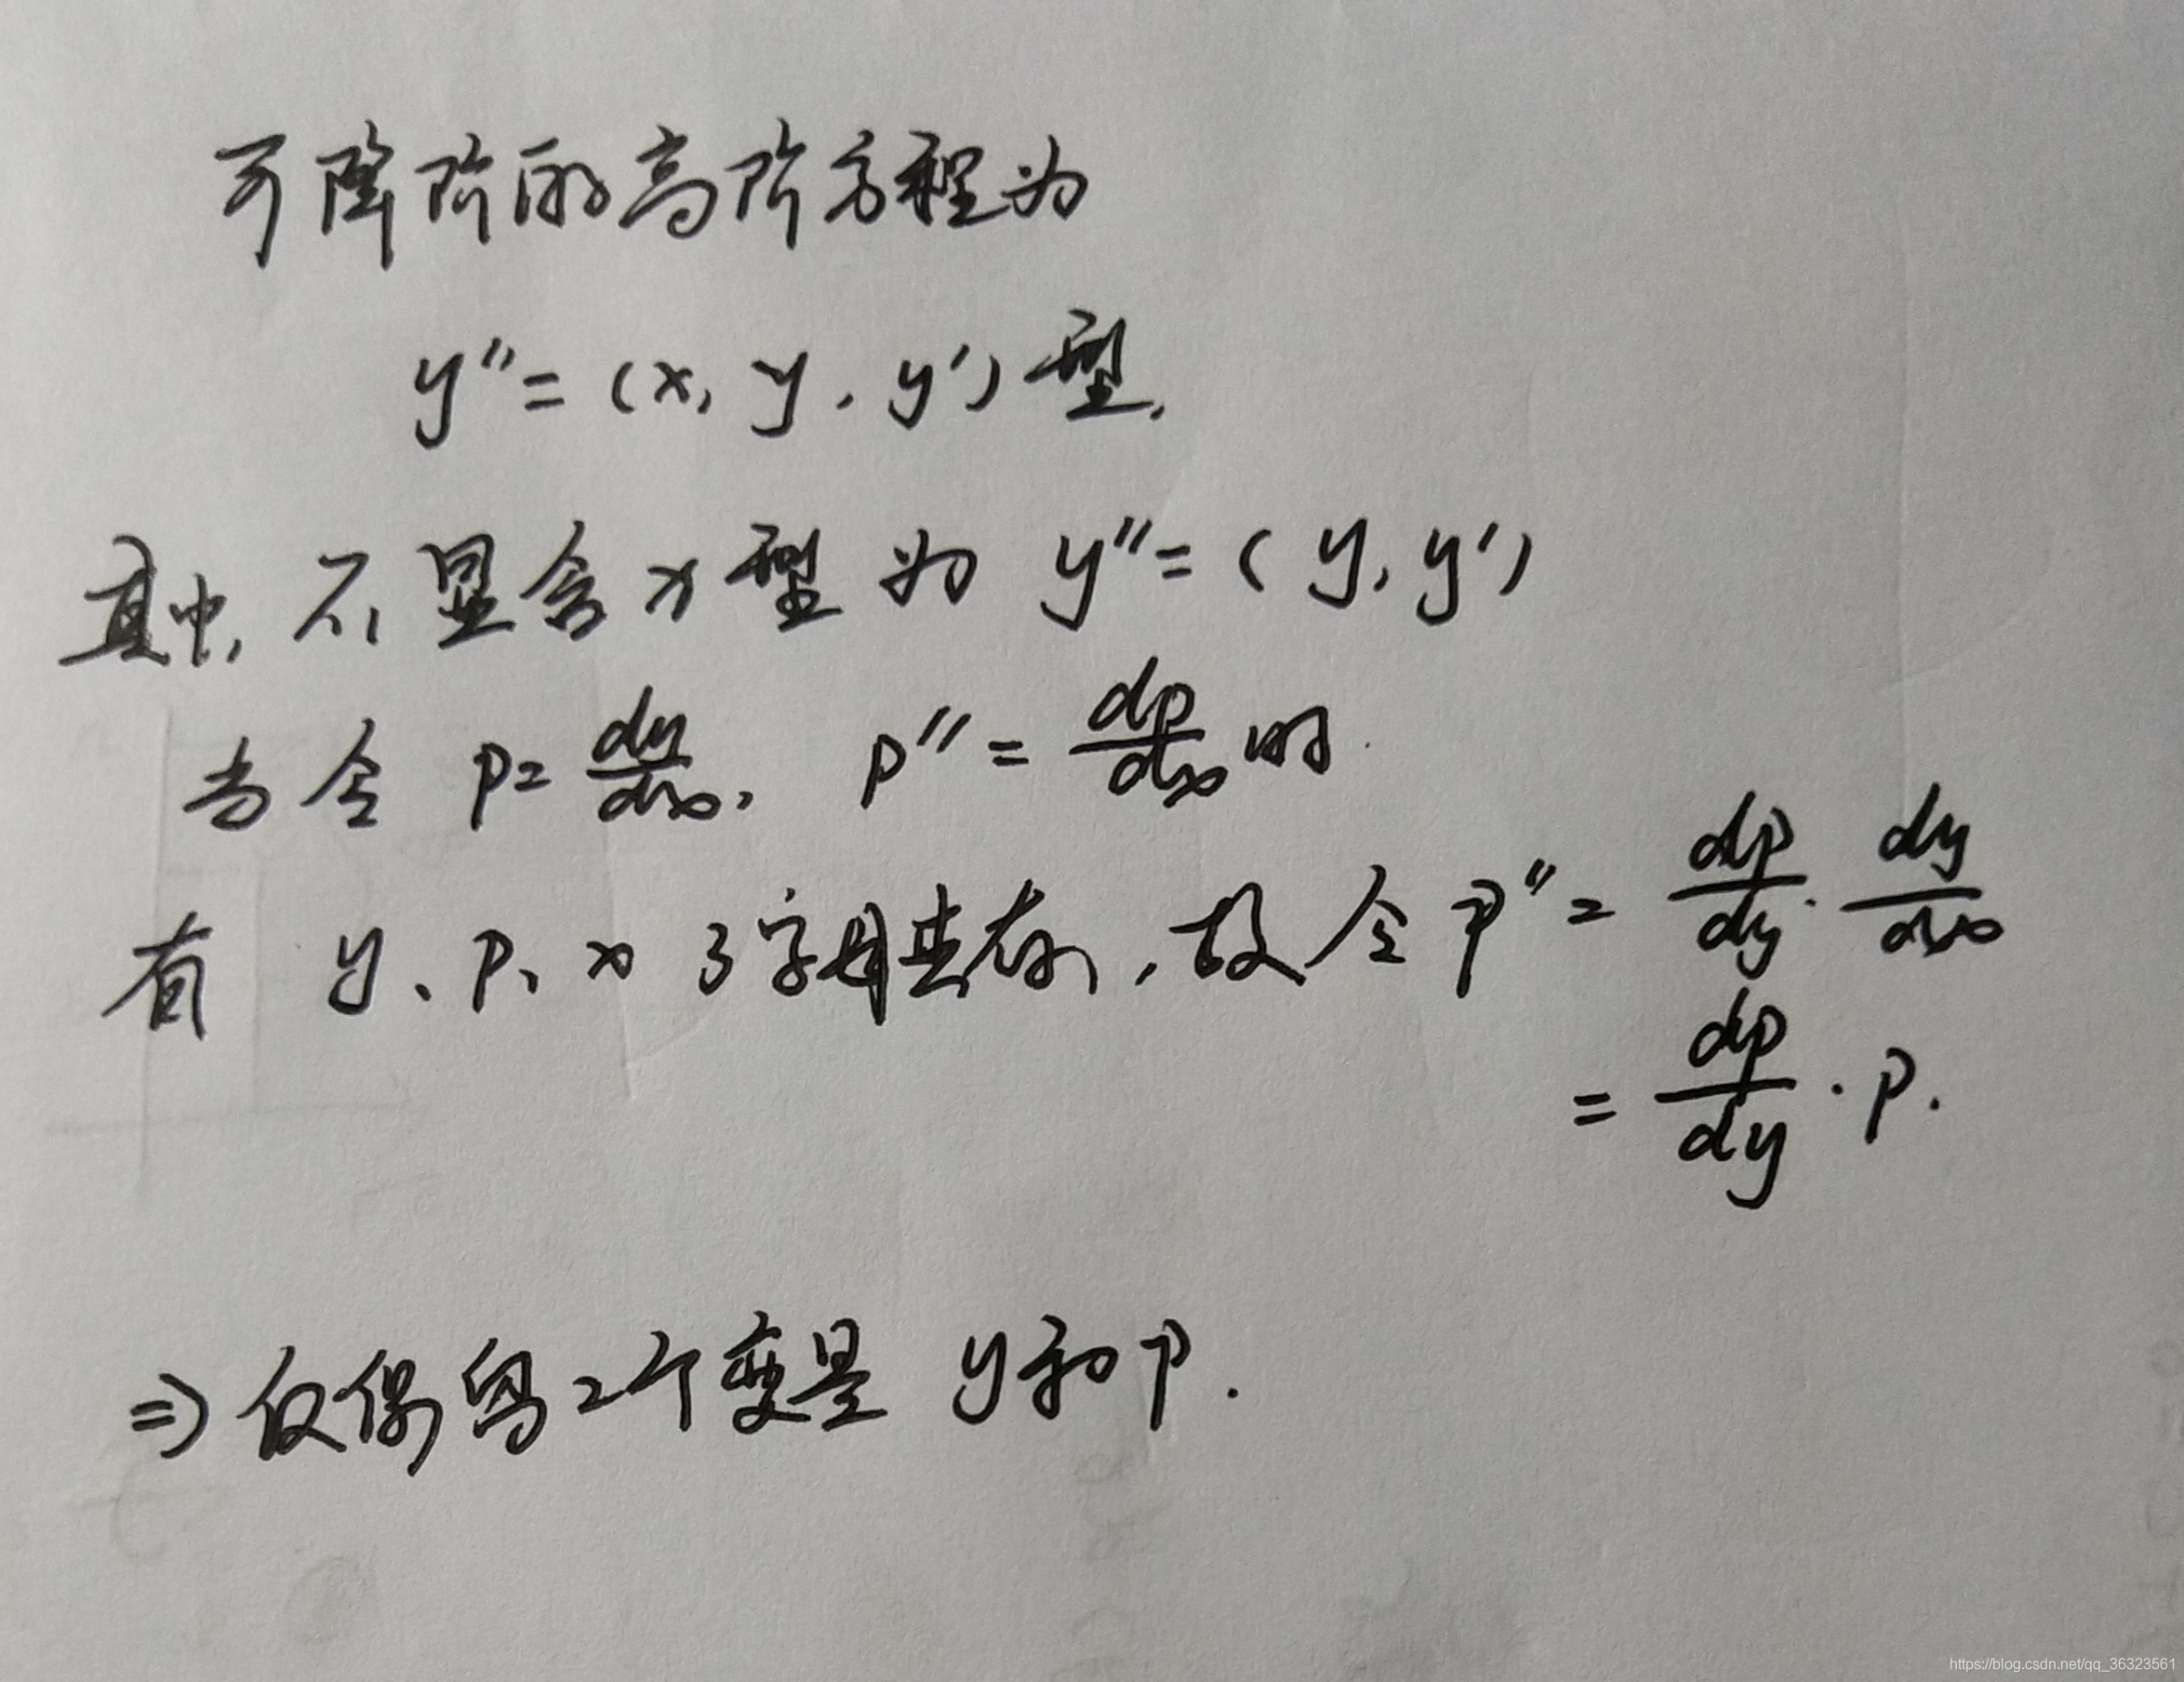 可降阶的高阶方程为
y''=(x, y, y')型,
其中, 不显含x型为 y''=(y, y')
当令 p=dy/dx, p''=dp/dx时
有 y、p、x 3字母共存, 故令 p''=dp/dy·dy/dx
=dp/dy·p.
⇒仅保留2个变量 y和p.
https://blog.csdn.net/qq_36323561